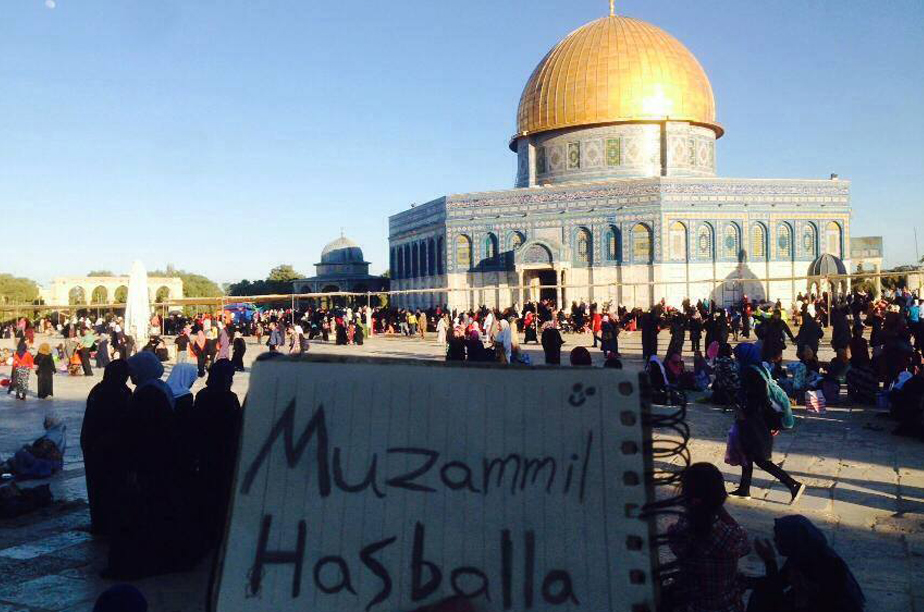 Muzammil
Hasballa